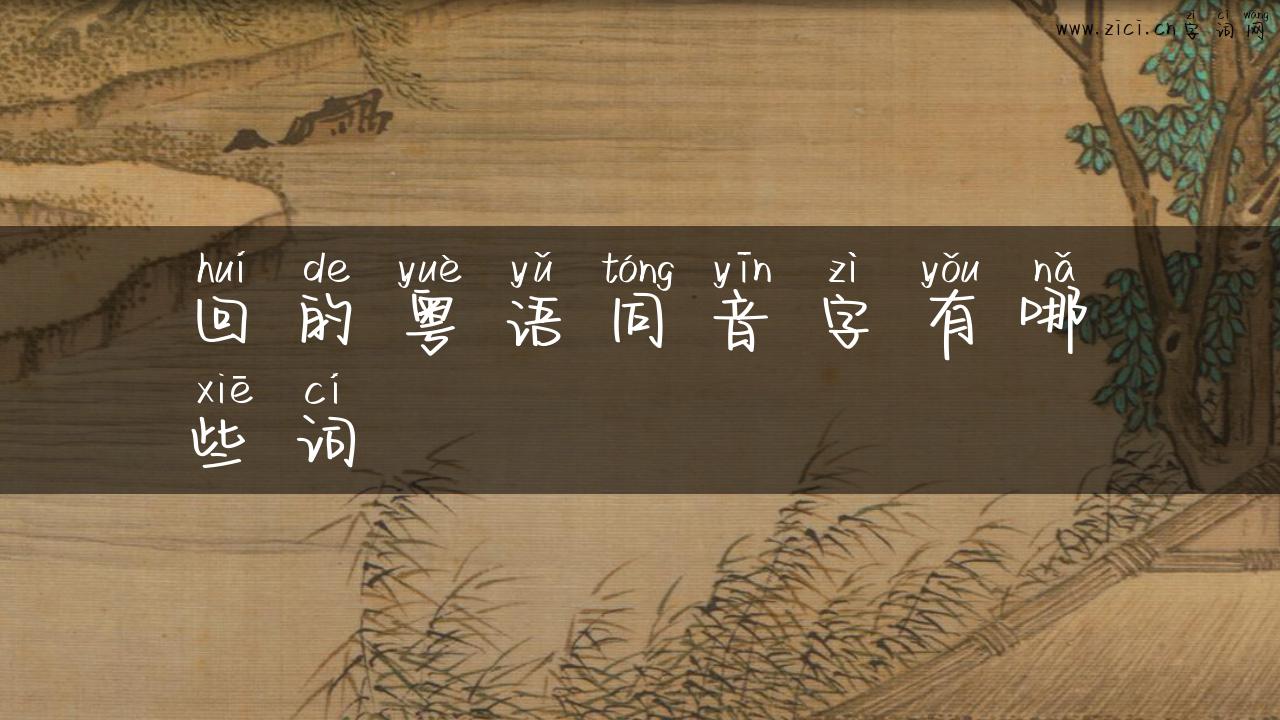 zì cí wǎng
www.zici.cn字词网
huí de yuè yǔ tóng yīn zì yǒu nǎ
回的粤语同音字有哪
xiē cí
些词